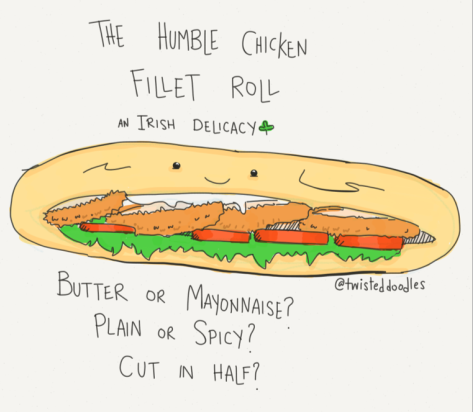 THE HUMBLE CHICKEN
FILLET ROLL
AN IRISH DELICACY
@twisteddoodles
BUTTER OR MAYONNAISE?
PLAIN OR SPICY?
CUT IN HALF?